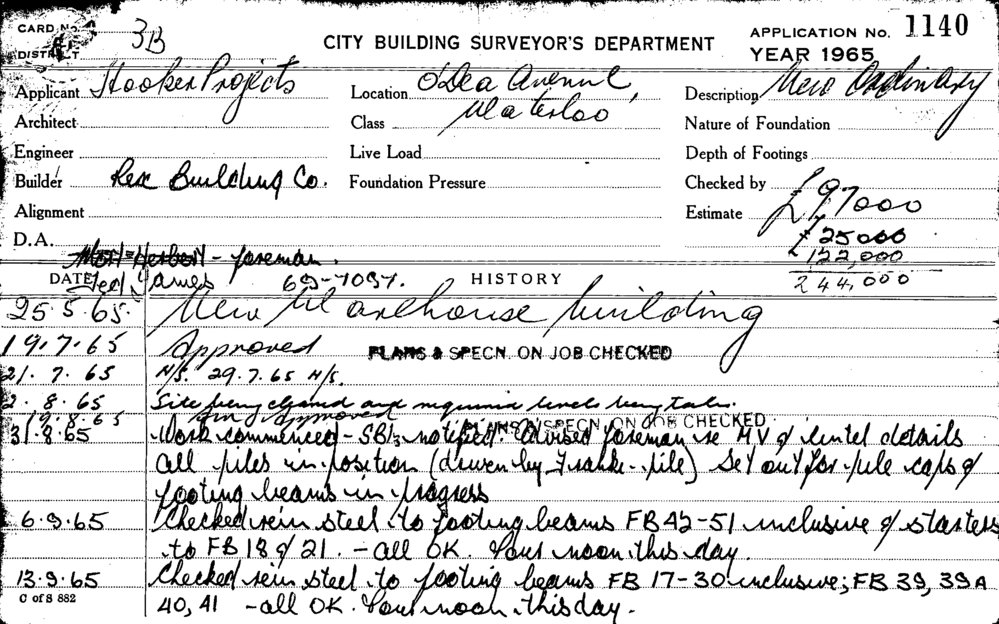 CARD No.
3B
CITY BUILDING SURVEYOR'S DEPARTMENT
APPLICATION No. 1140
DISTRICT
YEAR 1965
Applicant Hooker Projects
Location O'Dea Avenue,
Description New Ordinary
Architect
Class Waterloo
Nature of Foundation
Engineer
Live Load
Depth of Footings
Builder Rex Building Co.
Foundation Pressure
Checked by
£97000
Alignment
Estimate
£25000
D.A.
£122,000
Herbert - foreman.
244,000
DATE
Ted James 69-7097.
HISTORY
25.5.65. New Warehouse building
19.7.65 Approved PLANS & SPECN. ON JOB CHECKED
21.7.65 N/S. 29.7.65 N/S.
2.8.65 Site being cleared and levels being taken.
19.8.65 approved PLANS & SPECN. ON JOB CHECKED
31.8.65 Work commenced - notified. Advised foreman re MV & lintel details
all piles in position (driven by Franki-pile) Set out for pile caps &
footing beams in progress
6.9.65 Checked rein steel to footing beams FB 42-51 inclusive & starters
to FB 18 & 21. - all OK. Pour noon this day.
13.9.65 Checked rein steel to footing beams FB 17-30 inclusive; FB 39, 39A
C of S 882
40, 41 - all OK. Pour noon this day.